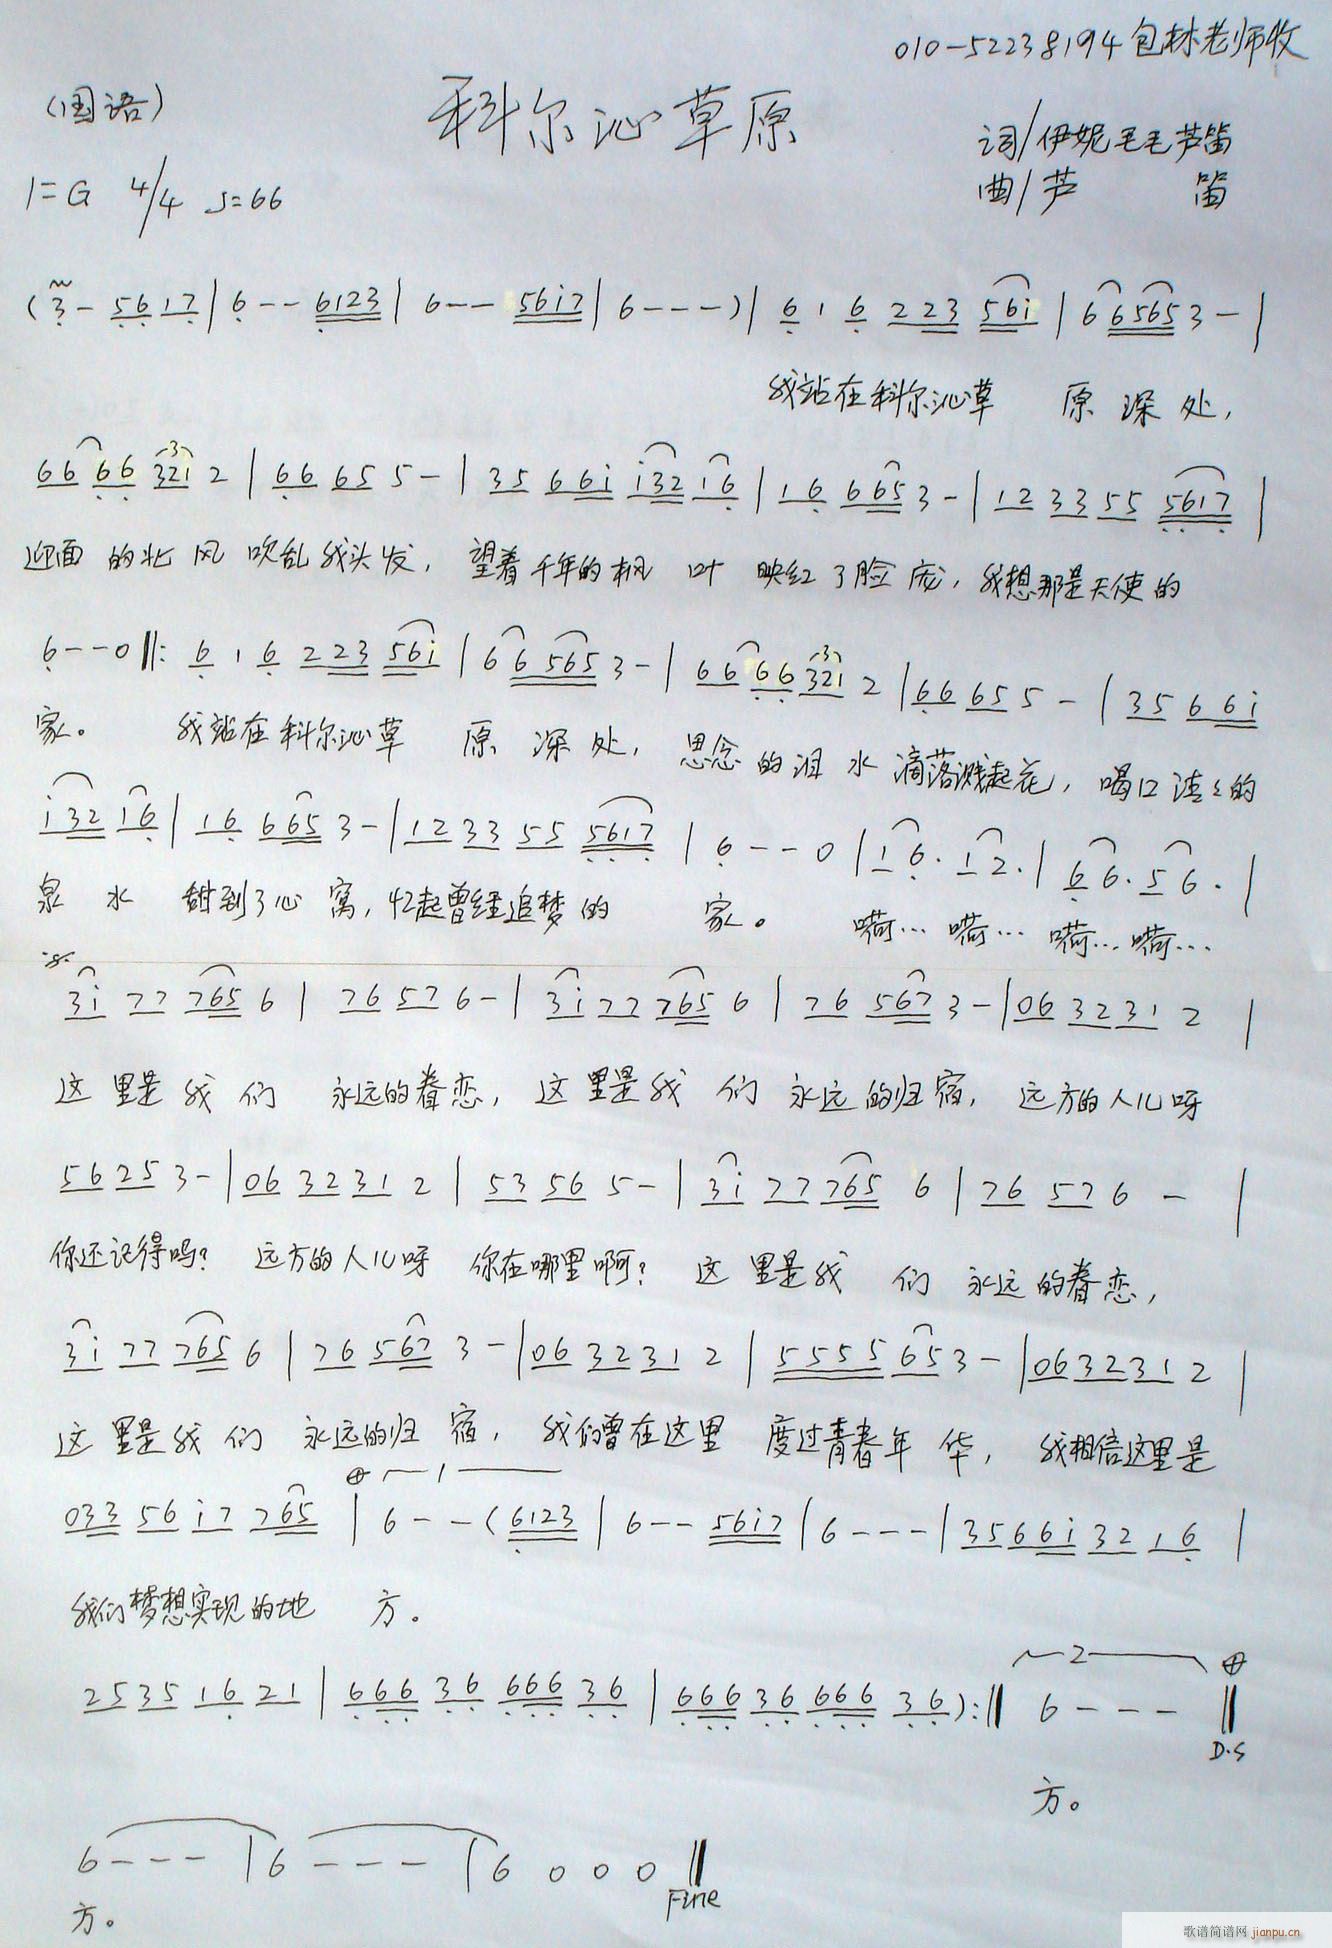 010-52238194包林老师收
(国语)
科尔沁草原
词/伊妮毛毛芦笛
1=G 4/4 ♩=66
曲/芦 笛
(3- 5617|6-- 6123|6-- 5617|6---)|6 1 6 2 23 561|6 6565 3-|
我站在科尔沁草 原 深 处,
66 66 321 2|66 65 5-|35 661 132 16|16 665 3-|12 33 55 5617|
迎面 的北 风 吹乱我头发, 望着千年的枫 叶 映红了脸庞, 我想那是天使的
6--0‖: 6 1 6 2 23 561|6 6 565 3-|66 66 321 2|66 65 5-|35 661
家。 我站在科尔沁草 原 深 处, 思念的泪 水 滴落溅起花, 喝口清清的
132 16|16 665 3-|12 33 55 5617|6--0|1 6. 1 2.|6 6. 5 6.|
泉 水 甜到了心 窝, 忆起曾经追梦的 家。 嗬… 嗬… 嗬… 嗬…
31 77 765 6|76 57 6-|31 77 765 6|76 567 3-|06 32 31 2|
这 里是 我 们 永远的眷恋, 这 里是我 们 永远的归宿, 远方的人儿呀
56 25 3-|06 32 31 2|53 56 5-|31 77 765 6|76 57 6 -|
你还记得吗? 远方的人儿呀 你在哪里啊? 这 里是我 们 永远的眷恋,
31 77 765 6|76 567 3-|06 32 31 2|5555 65 3-|06 32 31 2|
这 里是我 们 永远的归 宿, 我们曾在这里 度过青春年 华, 我相信这里是
1
033 56 17 765|6--(6123|6-- 5617|6---|35 661 32 16|
我们梦想实现的地 方。
2
25 35 16 21|666 36 666 36|666 36 666 36):‖ 6---‖
D.S
方。
6---|6---|6 0 0 0‖
Fine
方。
歌谱简谱网 jianpu.cn